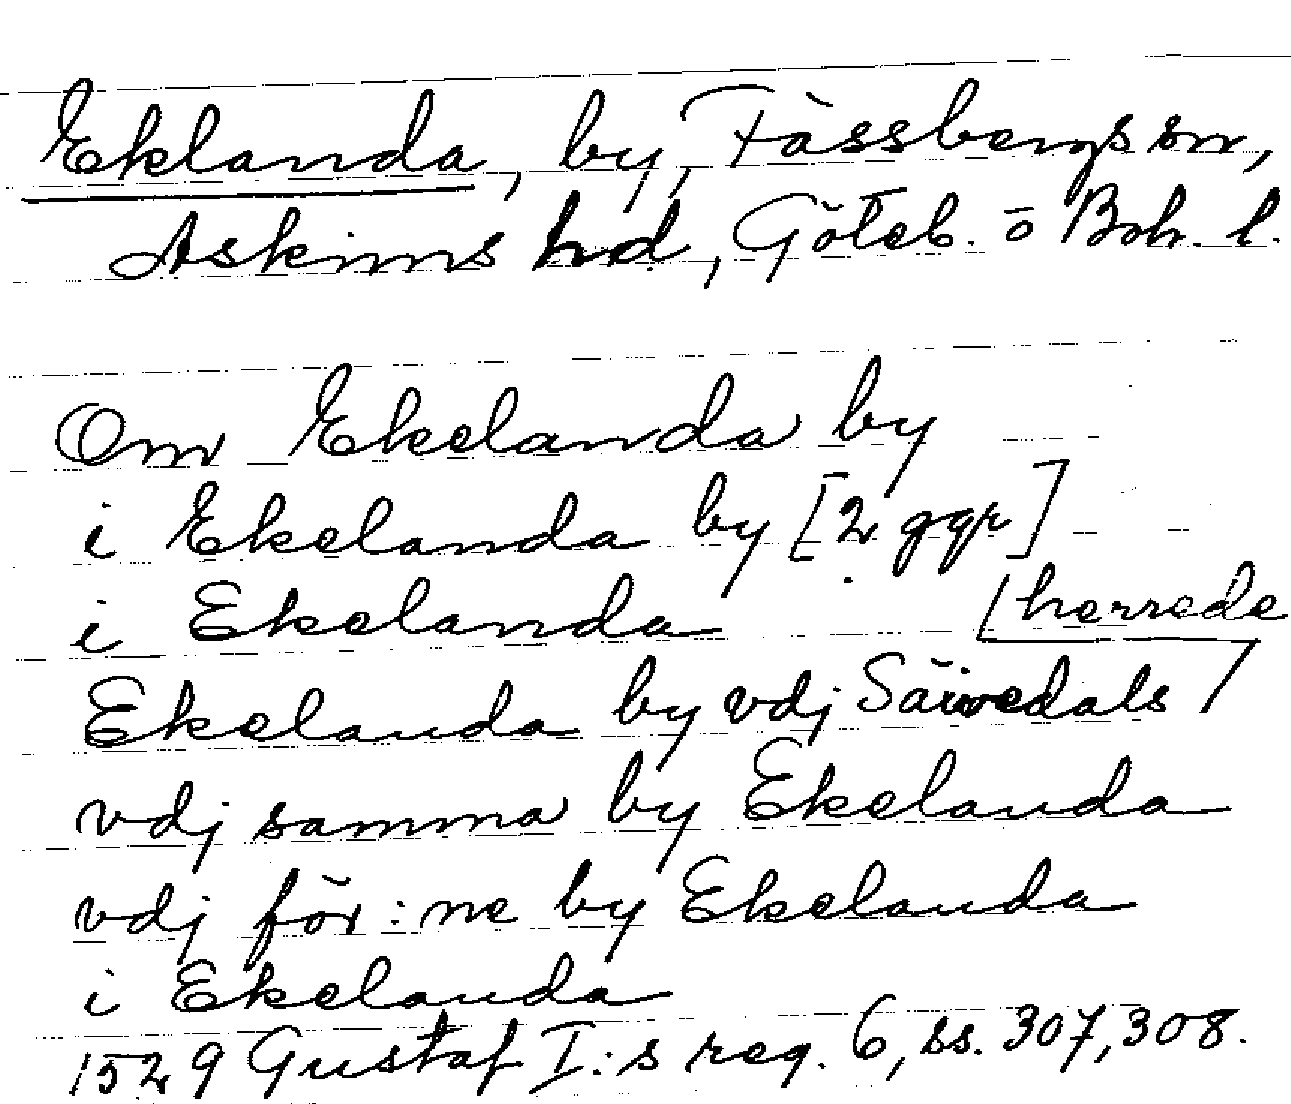 Eklanda, by, Fässbergs sn,
Askims hd, Göteb. o Boh. l.
Om Ekelanda by
i Ekelanda by [2 ggr]
i Ekelanda
[herrede
Ekelanda by vdj Säivedals /
vdj samma by Ekelanda
vdj för:ne by Ekelanda
i Ekelanda
1529 Gustaf I:s reg. 6, ss. 307, 308.